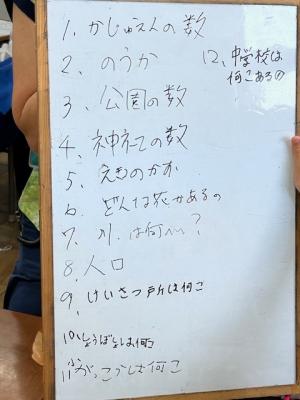 1. かじゅえんの数
2. のうか
3、公園の数
4. 神社の数
5、えきのかず
6. どんな花があるの
7. 川は何個?
8. 人口
9、けいさつ戸所は何こ
10、しょうぼしょは何こ
11 小がっこうは何こ
12、中学校は
何こあるの